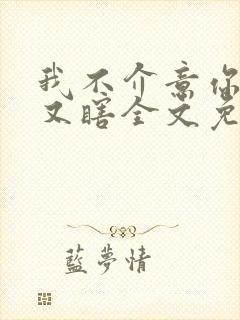 我不介意你
又瞎全文免
藍夢情